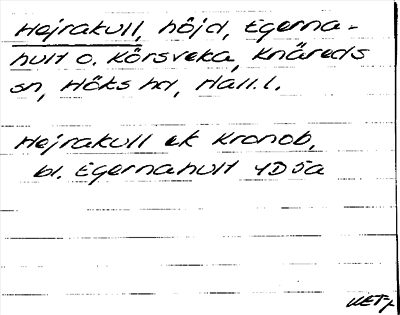 Hejrakull, höjd, Egerna-
hult o. Körsveka, Knäreds
sn, Höks hd, Hall.l.
Hejrakull ek Kronob,
bl. Egernahult 4D5a